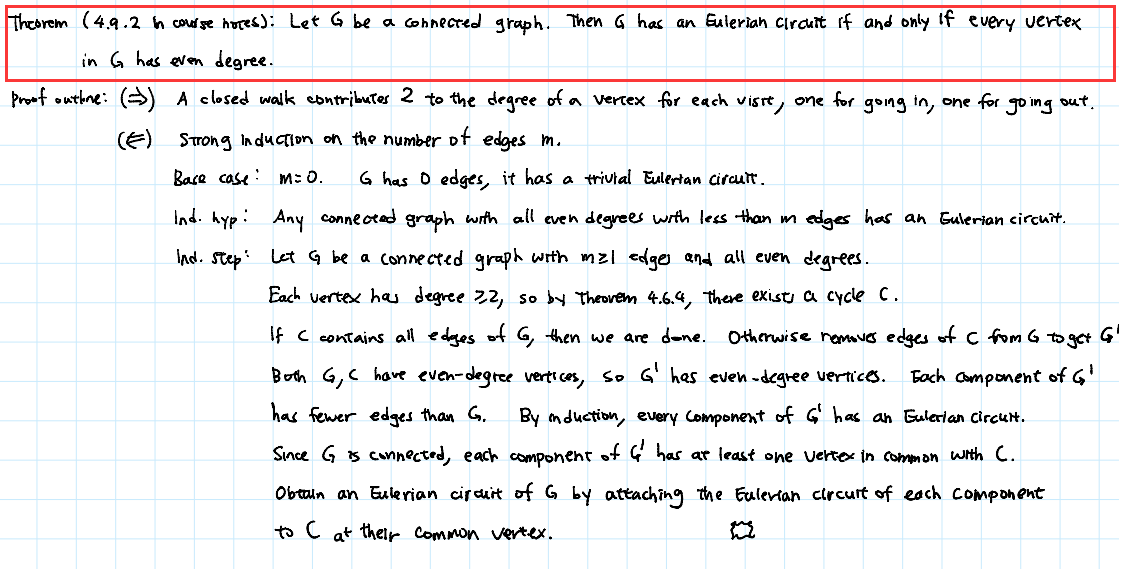 Theorem (4.9.2 in course notes): Let G be a connected graph. Then G has an Eulerian circuit if and only if every vertex
in G has even degree.
Proof outline: (⇒) A closed walk contributes 2 to the degree of a vertex for each visit, one for going in, one for going out.
(⇐) Strong induction on the number of edges m.
Base case: m=0. G has 0 edges, it has a trivial Eulerian circuit.
Ind. hyp: Any connected graph with all even degrees with less than m edges has an Eulerian circuit.
Ind. step: Let G be a connected graph with m≥1 edges and all even degrees.
Each vertex has degree ≥2, so by Theorem 4.6.4, there exists a cycle C.
If C contains all edges of G, then we are done. Otherwise removes edges of C from G to get G'
Both G, C have even-degree vertices, so G' has even-degree vertices. Each component of G'
has fewer edges than G. By induction, every component of G' has an Eulerian circuit.
Since G is connected, each component of G' has at least one vertex in common with C.
Obtain an Eulerian circuit of G by attaching the Eulerian circuit of each component
to C at their common vertex.